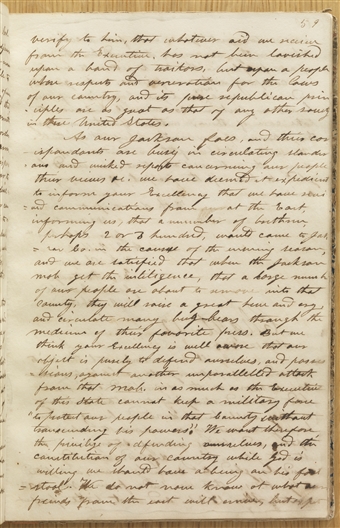 59
verify to him, that whatever aid we receive
from the Executive, has not been lavished
upon a band of traitors, but upon a people
whose respect and veneration for the laws
of our country, and its pure republican prin
ciples are as great as that of any other society
in these United States.
As our Jackson foes, and their cor
respondants are busy in circulating slander
ous and wicked reports concerning our people
their views &c. we have deemed it expedient
to inform your Excellency that we have recei
=ved communications from our friends in the East,
informing us, that a number of
perhaps 2 or 3 hundred, would come to Jack
=son Co. in the course of the ensuing season,
and we are satisfied that when the Jackson
mob get the intelligence, that a large number
of our people are about to remove into that
County, they will raise a great hue and cry
and circulate many bug bears through the
medium of their favorite press. But we
think your Excellency is well aware that our
object is purely to defend ourselves, and posses
=sions, against another unparallelled attack
from that mob, in as much as the Executive
of this State cannot keep a military force
"to protect our people in that County without
transcending his powers." We want therefore
the privilege of defending ourselves, and the
constitution of our country while God is
willing we should have a being on his foot
=stool. We do not now know at what
friends from the east will arrive, but